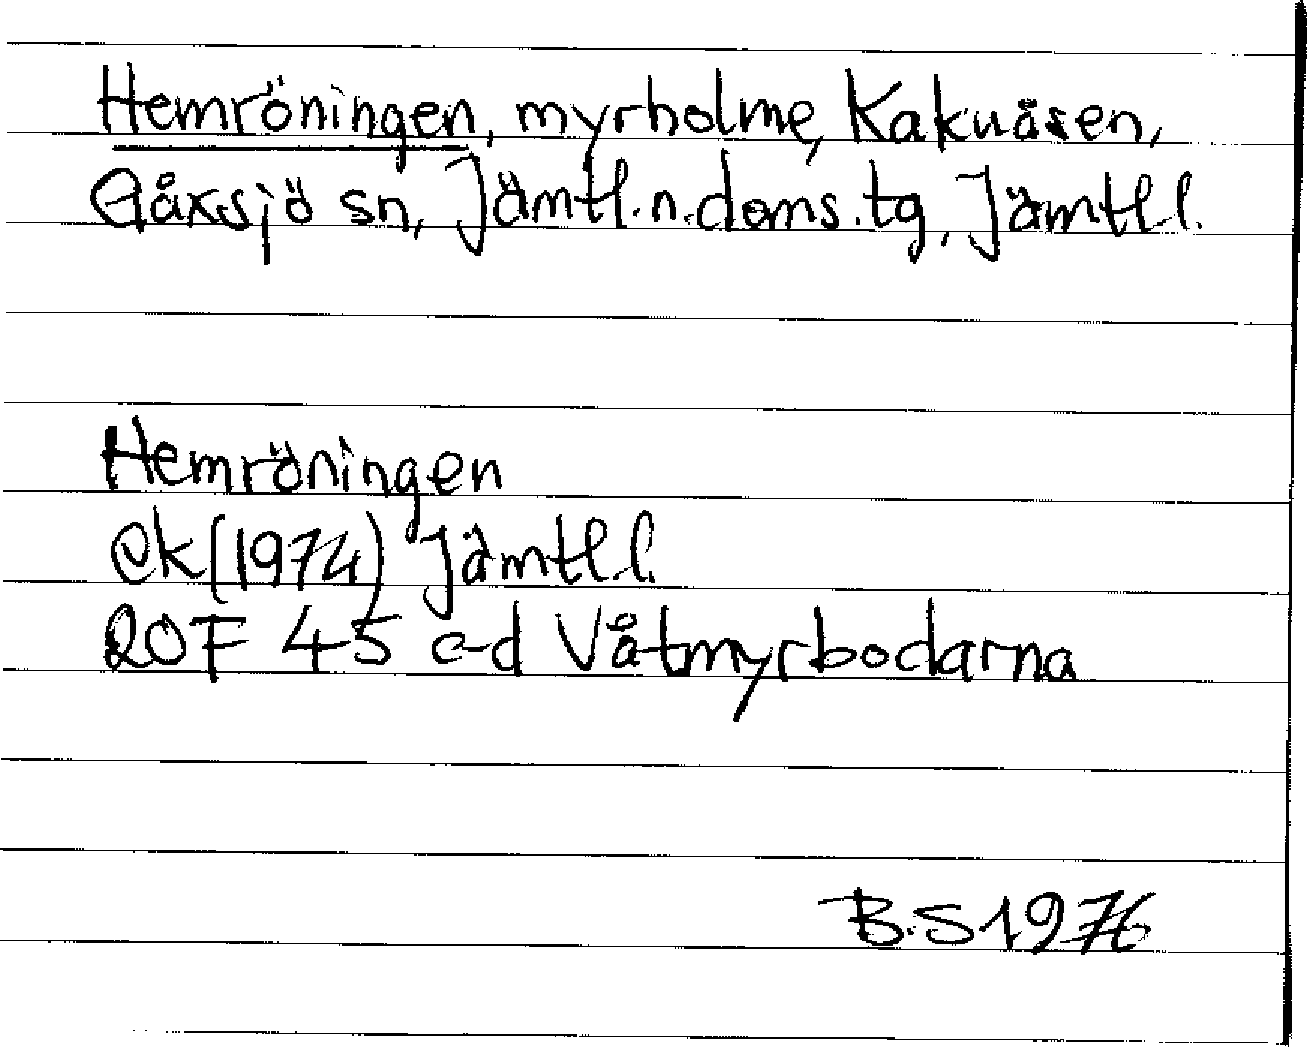 Hemröningen, myrholme, Kakuåsen,
Gåxsjö sn, Jämtl.n.doms.tg, Jämtl l.
Hemröningen
ek (1974) Jämtl.l.
20F 45 c-d Våtmyrbodarna
B.S 1976